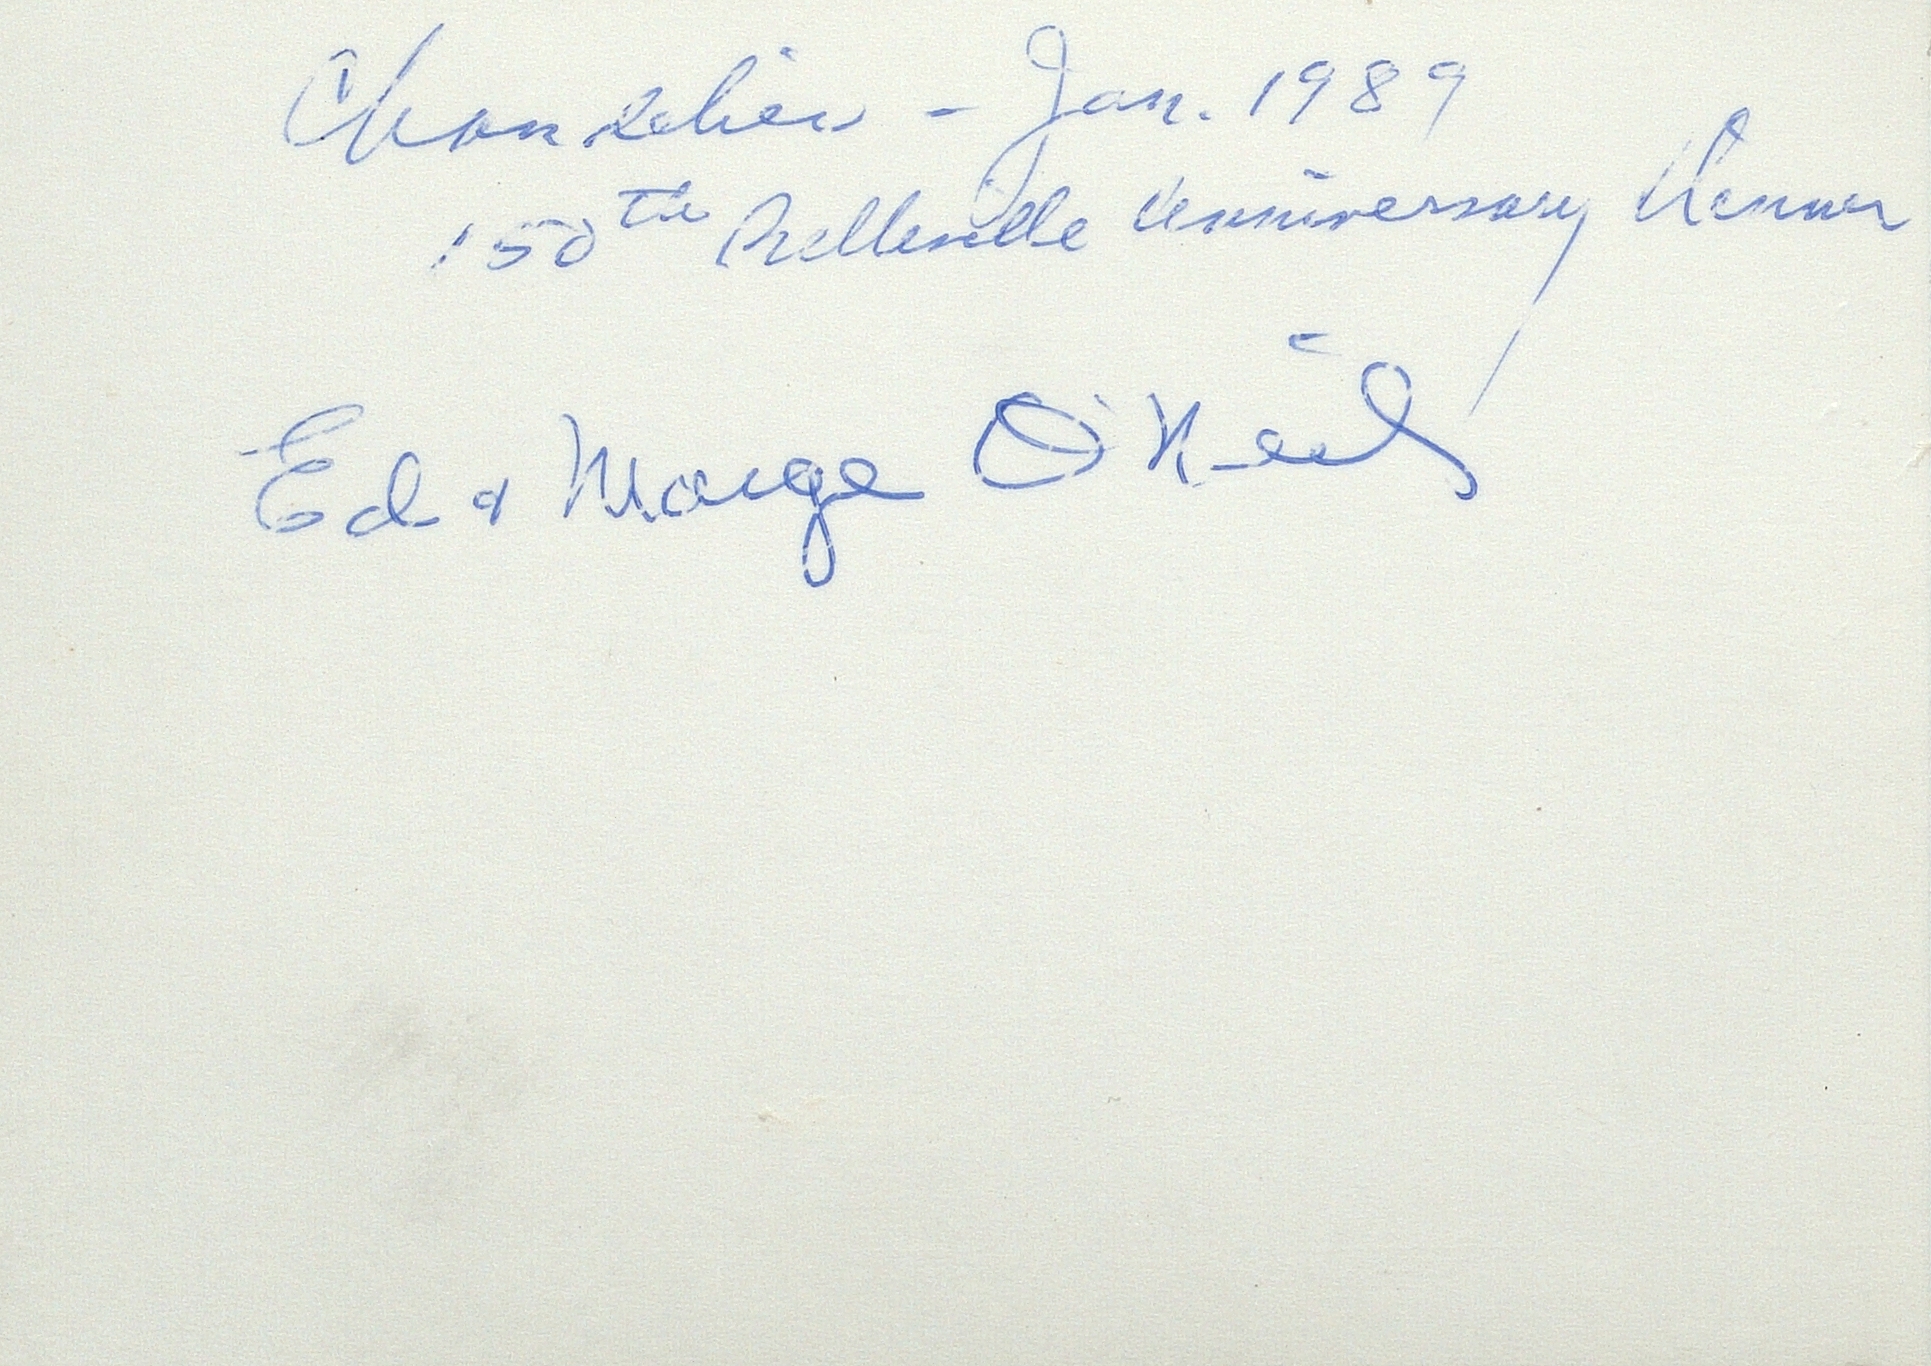 Chandelier - Jan. 1989
150th Belleville Anniversary Dinner
Ed & Marge O'Neil